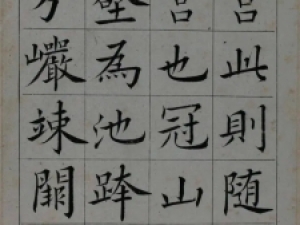 宮此則随
宮也冠山
壑為池跨
分巗竦闕